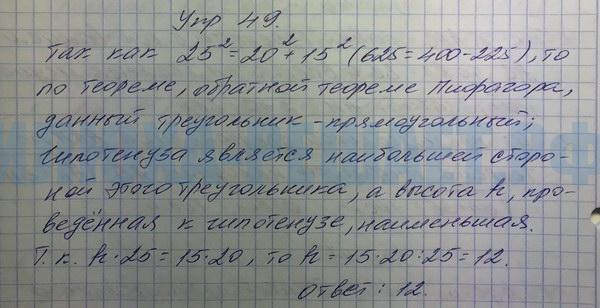 Упр 49.
Так как 25²=20²+15² (625=400-225), то
по теореме, обратной теореме Пифагора,
данный треугольник - прямоугольный;
Гипотенуза является наибольшей сторо-
ной этого треугольника, а высота h, про-
ведённая к гипотенузе, наименьшая.
Т.к. h·25=15·20, то h=15·20:25=12.
Ответ: 12.